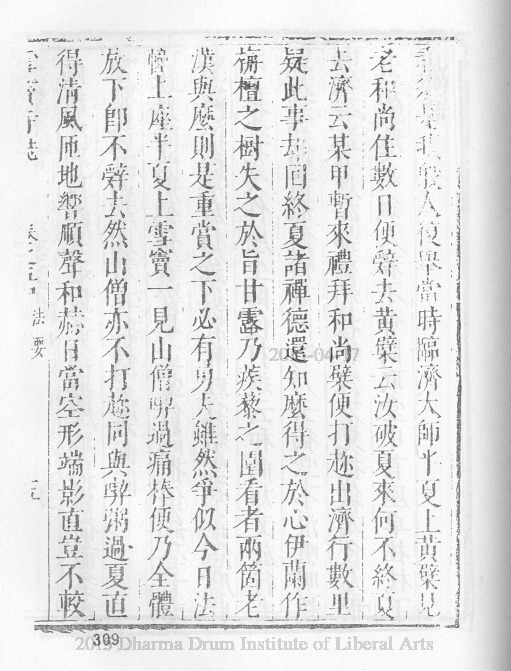 般人復舉當時臨濟大師半夏上黃檗見
老和尚住數日便辭去黃檗云汝破夏來何不終夏
去濟云某甲暫來禮拜和尚檗便打趂出濟行數里
疑此事却回終夏諸禪德還知麼得之於心伊蘭作
旃檀之樹失之於旨甘露乃蒺藜之園看者兩箇老
漢與麼則是重賞之下必有勇夫雖然爭似今日法
上座半夏上雪竇一見山僧過痛棒便乃全體
放下卽不辭去然山僧亦不打趂同與粥過夏直
得清風匝地響順聲和赫日當空形端影直豈不較
雪竇寺誌 卷之五 法要
309
Dharma Drum Institute of Liberal Arts